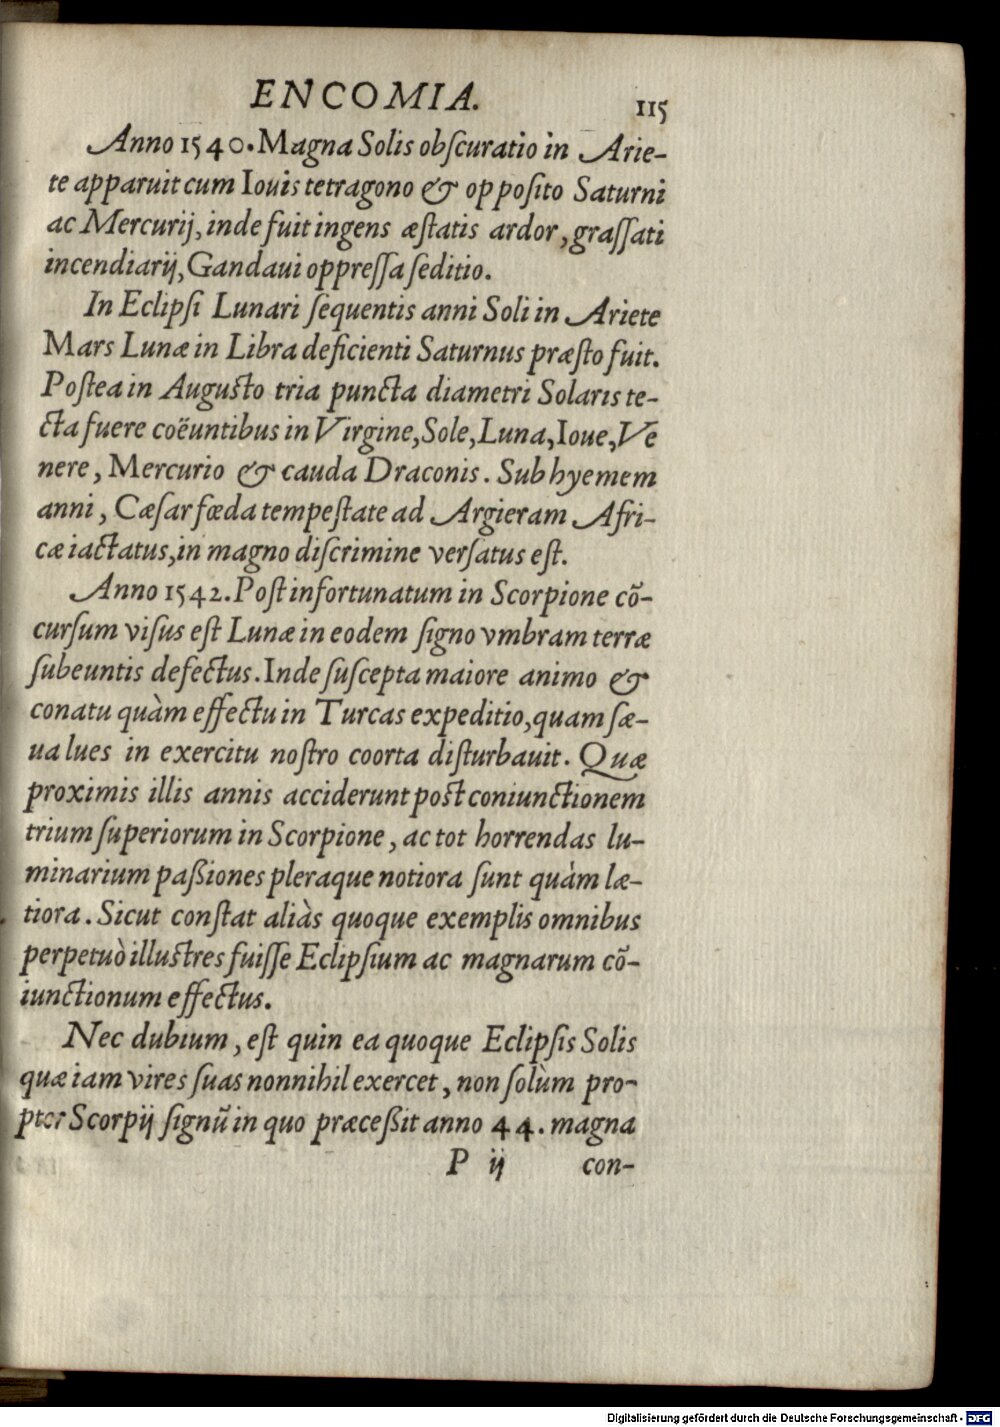 ENCOMIA. 115
Anno 1540. Magna Solis obſcuratio in Arie-
te apparuit cum Iouis tetragono & oppoſito Saturni
ac Mercurij, inde fuit ingens æſtatis ardor, graſſati
incendiarij, Gandaui oppreſſa ſeditio.
In Eclipſi Lunari ſequentis anni Soli in Ariete
Mars Lunæ in Libra deficienti Saturnus præſto fuit.
Poſtea in Auguſto tria puncta diametri Solaris te-
cta fuere coëuntibus in Virgine, Sole, Luna, Ioue, Vē
nere, Mercurio & cauda Draconis. Sub hyemem
anni, Cæſar fœda tempeſtate ad Argieram Afri-
cæ iactatus, in magno diſcrimine verſatus eſt.
Anno 1542. Poſt infortunatum in Scorpione cō-
curſum viſus eſt Lunæ in eodem ſigno vmbram terræ
ſubeuntis defectus. Inde ſuſcepta maiore animo &
conatu quàm effectu in Turcas expeditio, quam ſæ-
ua lues in exercitu noſtro coorta diſturbauit. Quæ
proximis illis annis acciderunt poſt coniunctionem
trium ſuperiorum in Scorpione, ac tot horrendas lu-
minarium paßiones pleraque notiora ſunt quàm læ-
tiora. Sicut conſtat aliàs quoque exemplis omnibus
perpetuò illuſtres fuiſſe Eclipſium ac magnarum cō-
iunctionum effectus.
Nec dubium, eſt quin ea quoque Eclipſis Solis
quæ iam vires ſuas nonnihil exercet, non ſolùm pro-
pter Scorpij ſignū in quo præceßit anno 44. magna
P ij con-
Digitalisierung gefördert durch die Deutsche Forschungsgemeinschaft - DFG